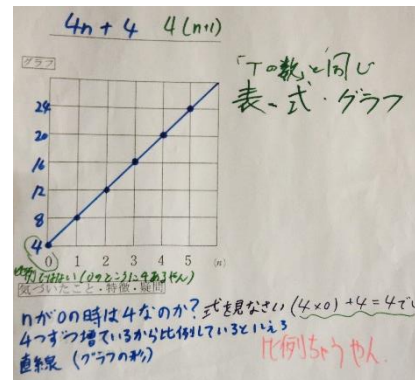 4n + 4  4(n+1)
「Tの数」と同じ
表、式・グラフ
グラフ
24
20
16
12
8
4
0 1 2 3 4 5 (n)
はない(0のところに4あるやん)
気づいたこと・特徴・疑問
nが0の時は4なのか? 式を見なさい (4×0)+4=4で
4つずつ増ているから比例しているといえる
直線 (グラフの形)
比例ちゃうやん.